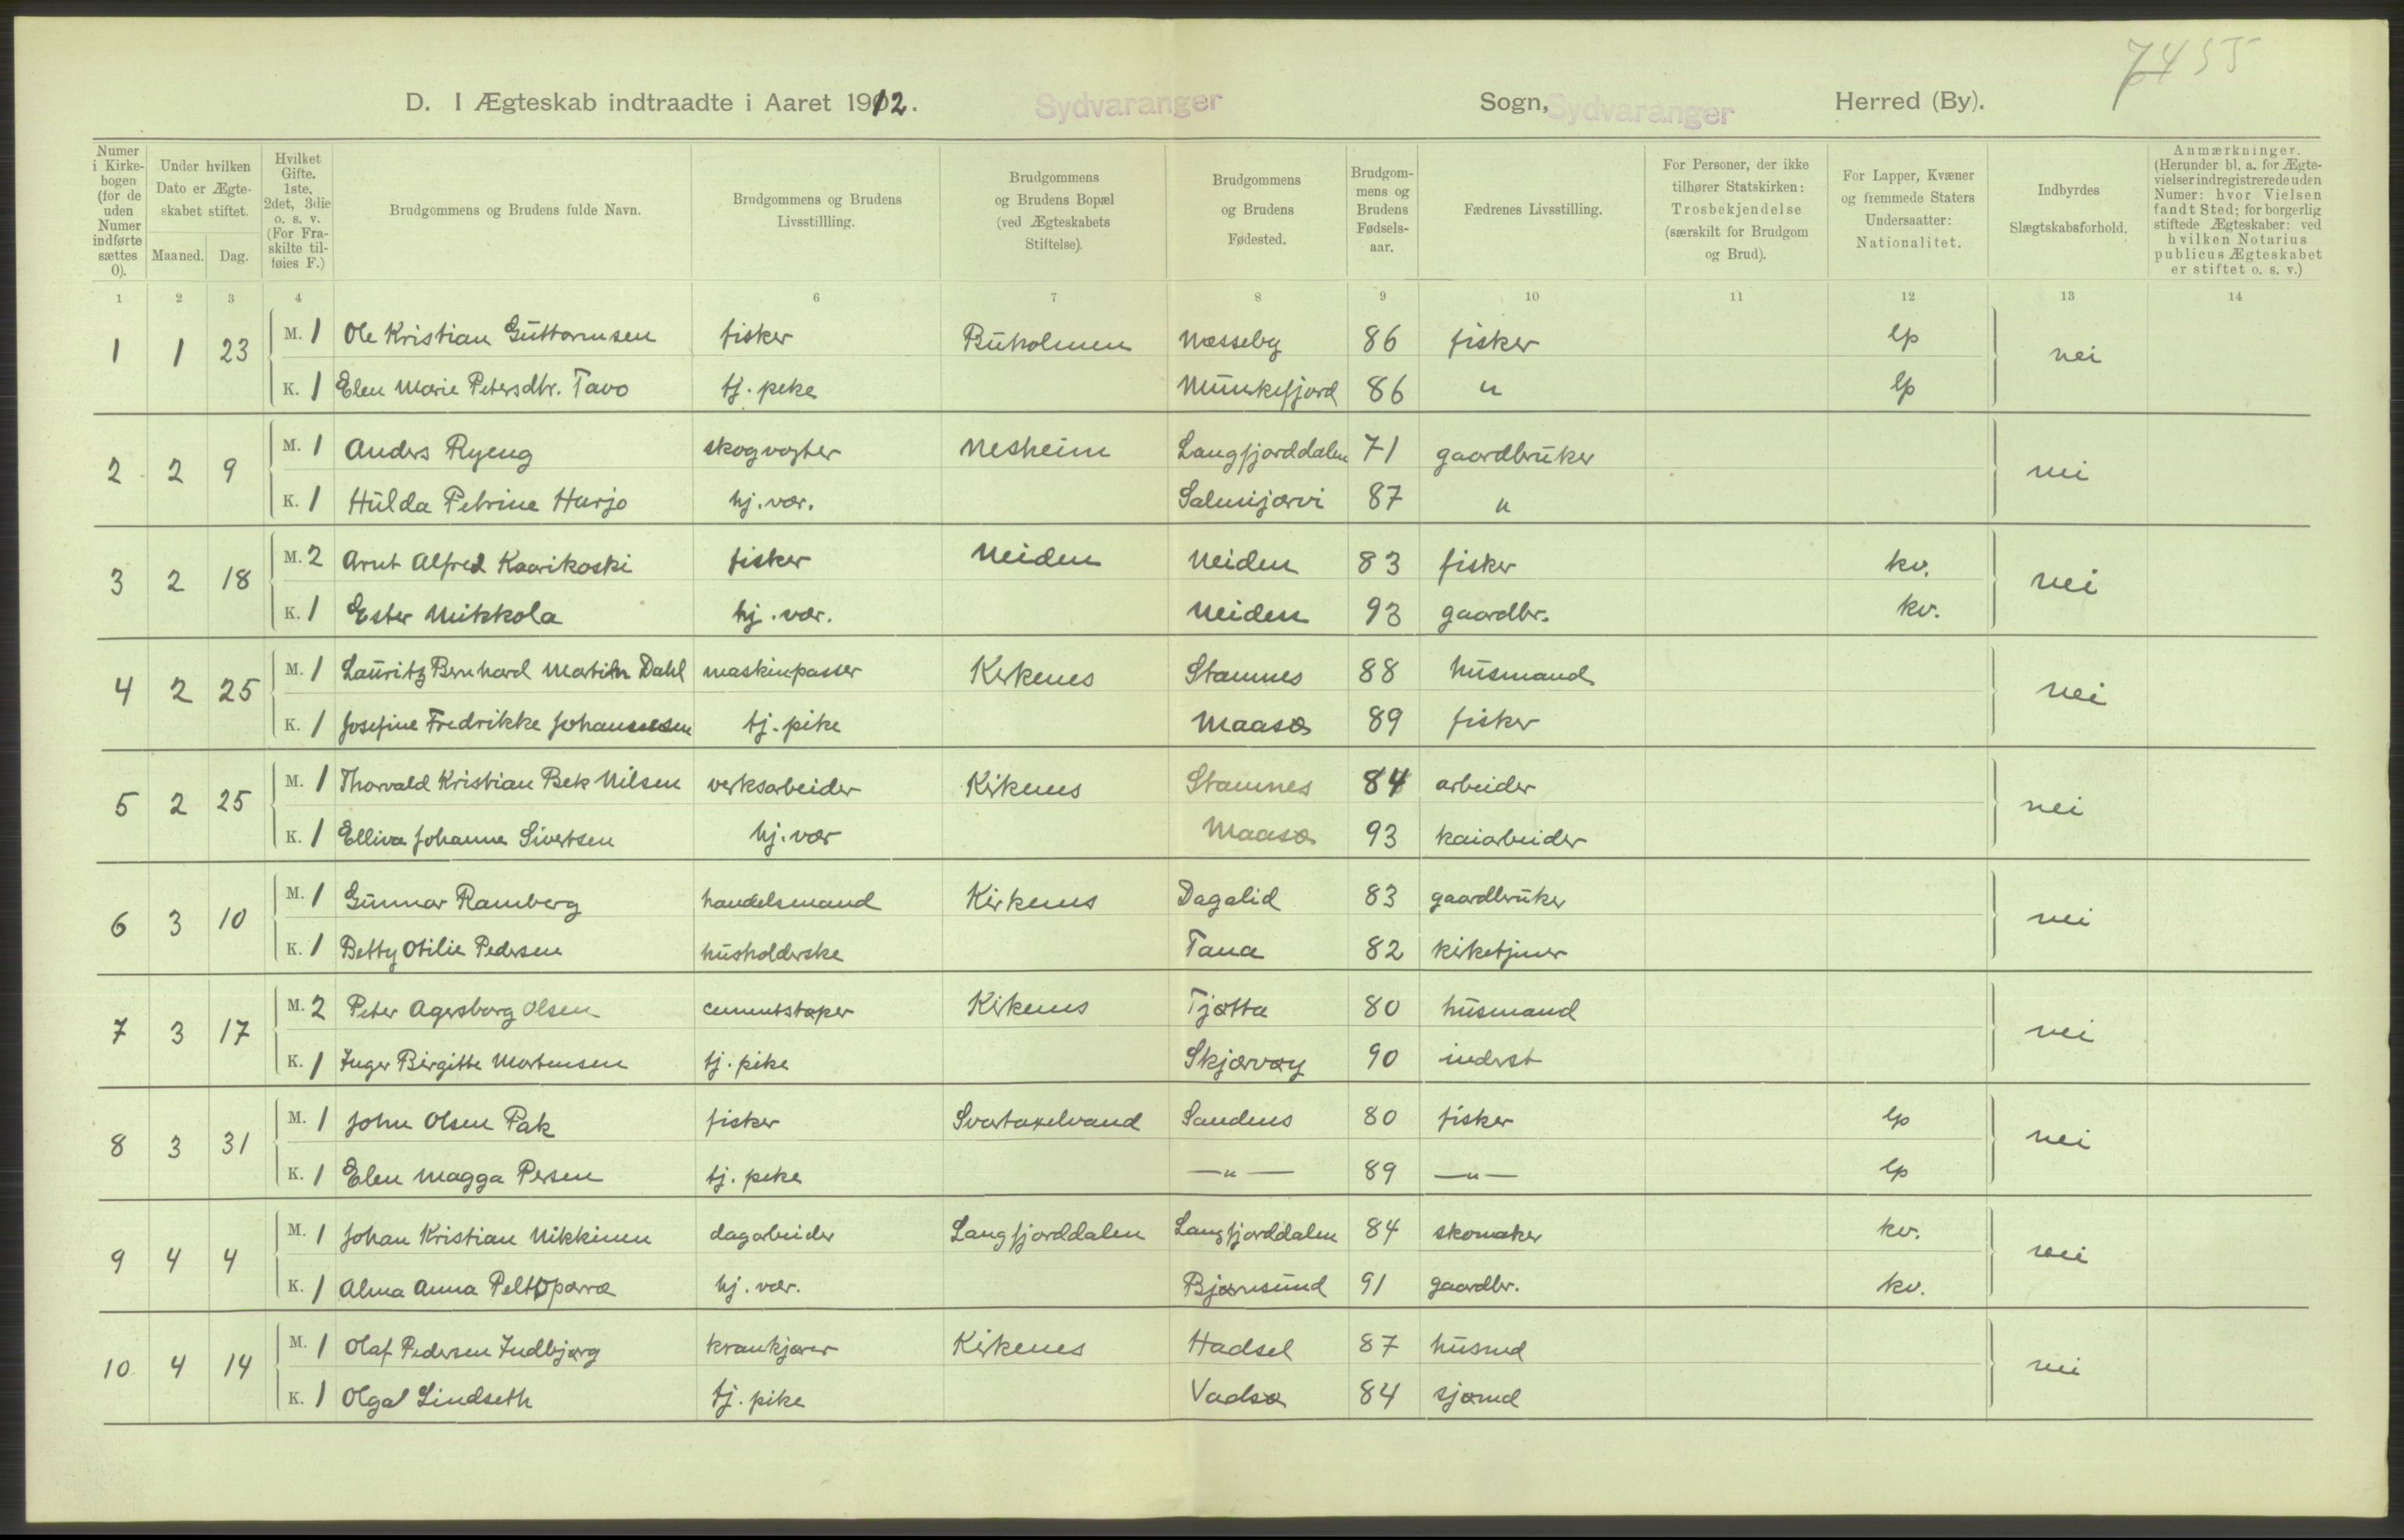 7455
D. I Ægteskab indtraadte i Aaret 1912. Sydvaranger Sogn, Sydvaranger Herred (By).
Numer i Kirkebogen (for de uden Numer indførte sættes 0). | Under hvilken Dato er Ægteskabet stiftet. Maaned. Dag. | Hvilket Gifte. 1ste, 2det, 3die o. s. v. (For Fraskilte tilføies F.) | Brudgommens og Brudens fulde Navn. | Brudgommens og Brudens Livsstillling. | Brudgommens og Brudens Bopæl (ved Ægteskabets Stiftelse). | Brudgommens og Brudens Fødested. | Brudgommens og Brudens Fødselsaar. | Fædrenes Livsstilling. | For Personer, der ikke tilhører Statskirken: Trosbekjendelse (særskilt for Brudgom og Brud). | For Lapper, Kvæner og fremmede Staters Undersaatter: Nationalitet. | Indbyrdes Slægtskabsforhold. | Anmærkninger. (Herunder bl. a. for Ægtevielser indregistrerede uden Numer: hvor Vielsen fandt Sted; for borgerlig stiftede Ægteskaber: ved hvilken Notarius publicus Ægteskabet er stiftet o. s. v.)
1 2 3 4 6 7 8 9 10 11 12 13 14
1 1 23 M. 1 Ole Kristian Guttormsen fisker Buholmen Næsseby 86 fisker lp nei
K. 1 Elen Marie Petersdtr. Tavo tj. pike Munkefjord 86 " lp
2 2 9 M. 1 Anders Ryeng skogvogter Nesheim Langfjorddalen 71 gaardbruker nei
K. 1 Hulda Petrine Harjo hj. vær. Salmijærvi 87 "
3 2 18 M. 2 Arnt Alfred Kaarikoski fisker Neiden Neiden 83 fisker kv. nei
K. 1 Ester Mikkola hj. vær. Neiden 93 gaardbr. kv.
4 2 25 M. 1 Lauritz Bernhard Martin Dahl maskinpasser Kirkenes Stamnes 88 husmand nei
K. 1 Josefine Fredrikke Johannesen tj. pike Maasø 89 fisker
5 2 25 M. 1 Thorvald Kristian Bek Nilsen verksarbeider Kirkenes Stamnes 84 arbeider nei
K. 1 Elliva Johanne Sivertsen hj. vær Maasø 93 kaiarbeider
6 3 10 M. 1 Gunnar Ramberg handelsmand Kirkenes Dagalid 83 gaardbruker nei
K. 1 Betty Otilie Pedersen husholderske Tana 82 kirketjener
7 3 17 M. 2 Peter Agersborg Olsen cementstøper Kirkenes Tjøtta 80 husmand nei
K. 1 Inger Birgitte Mortensen tj. pike Skjærvøy 90 inderst
8 3 31 M. 1 John Olsen Pak fisker Svartaxelvand Sandnes 80 fisker lp nei
K. 1 Elen Magga Persen tj. pike —"— 89 —"— lp
9 4 4 M. 1 Johan Kristian Nikkinen dagarbeider Langfjorddalen Langfjorddalen 84 skomaker kv. nei
K. 1 Alma Anna Peltoparra hj. vær. Bjørnsund 91 gaardbr. kv.
10 4 14 M. 1 Olaf Pedersen Indbjørg krankjører Kirkenes Hadsel 87 husmd nei
K. 1 Olga Lindseth tj. pike Vadsø 84 sjømd